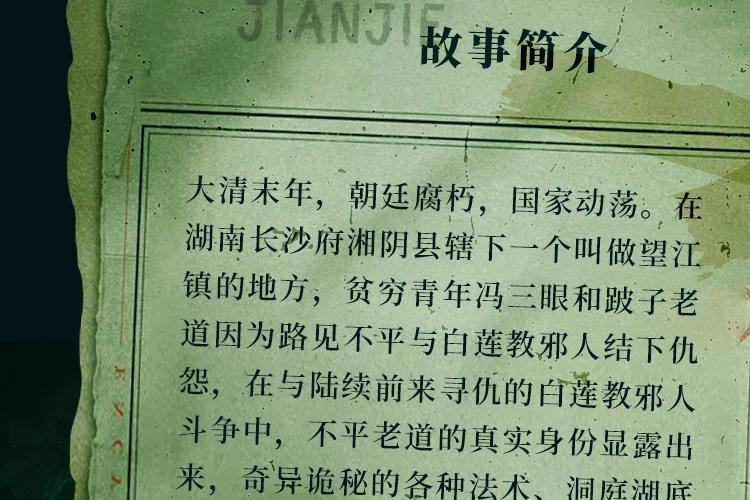 JIANJIE
故事简介
大清末年，朝廷腐朽，国家动荡。在
湖南长沙府湘阴县辖下一个叫做望江
镇的地方，贫穷青年冯三眼和跛子老
道因为路见不平与白莲教邪人结下仇
怨，在与陆续前来寻仇的白莲教邪人
斗争中，不平老道的真实身份显露出
来，奇异诡秘的各种法术、洞庭湖底